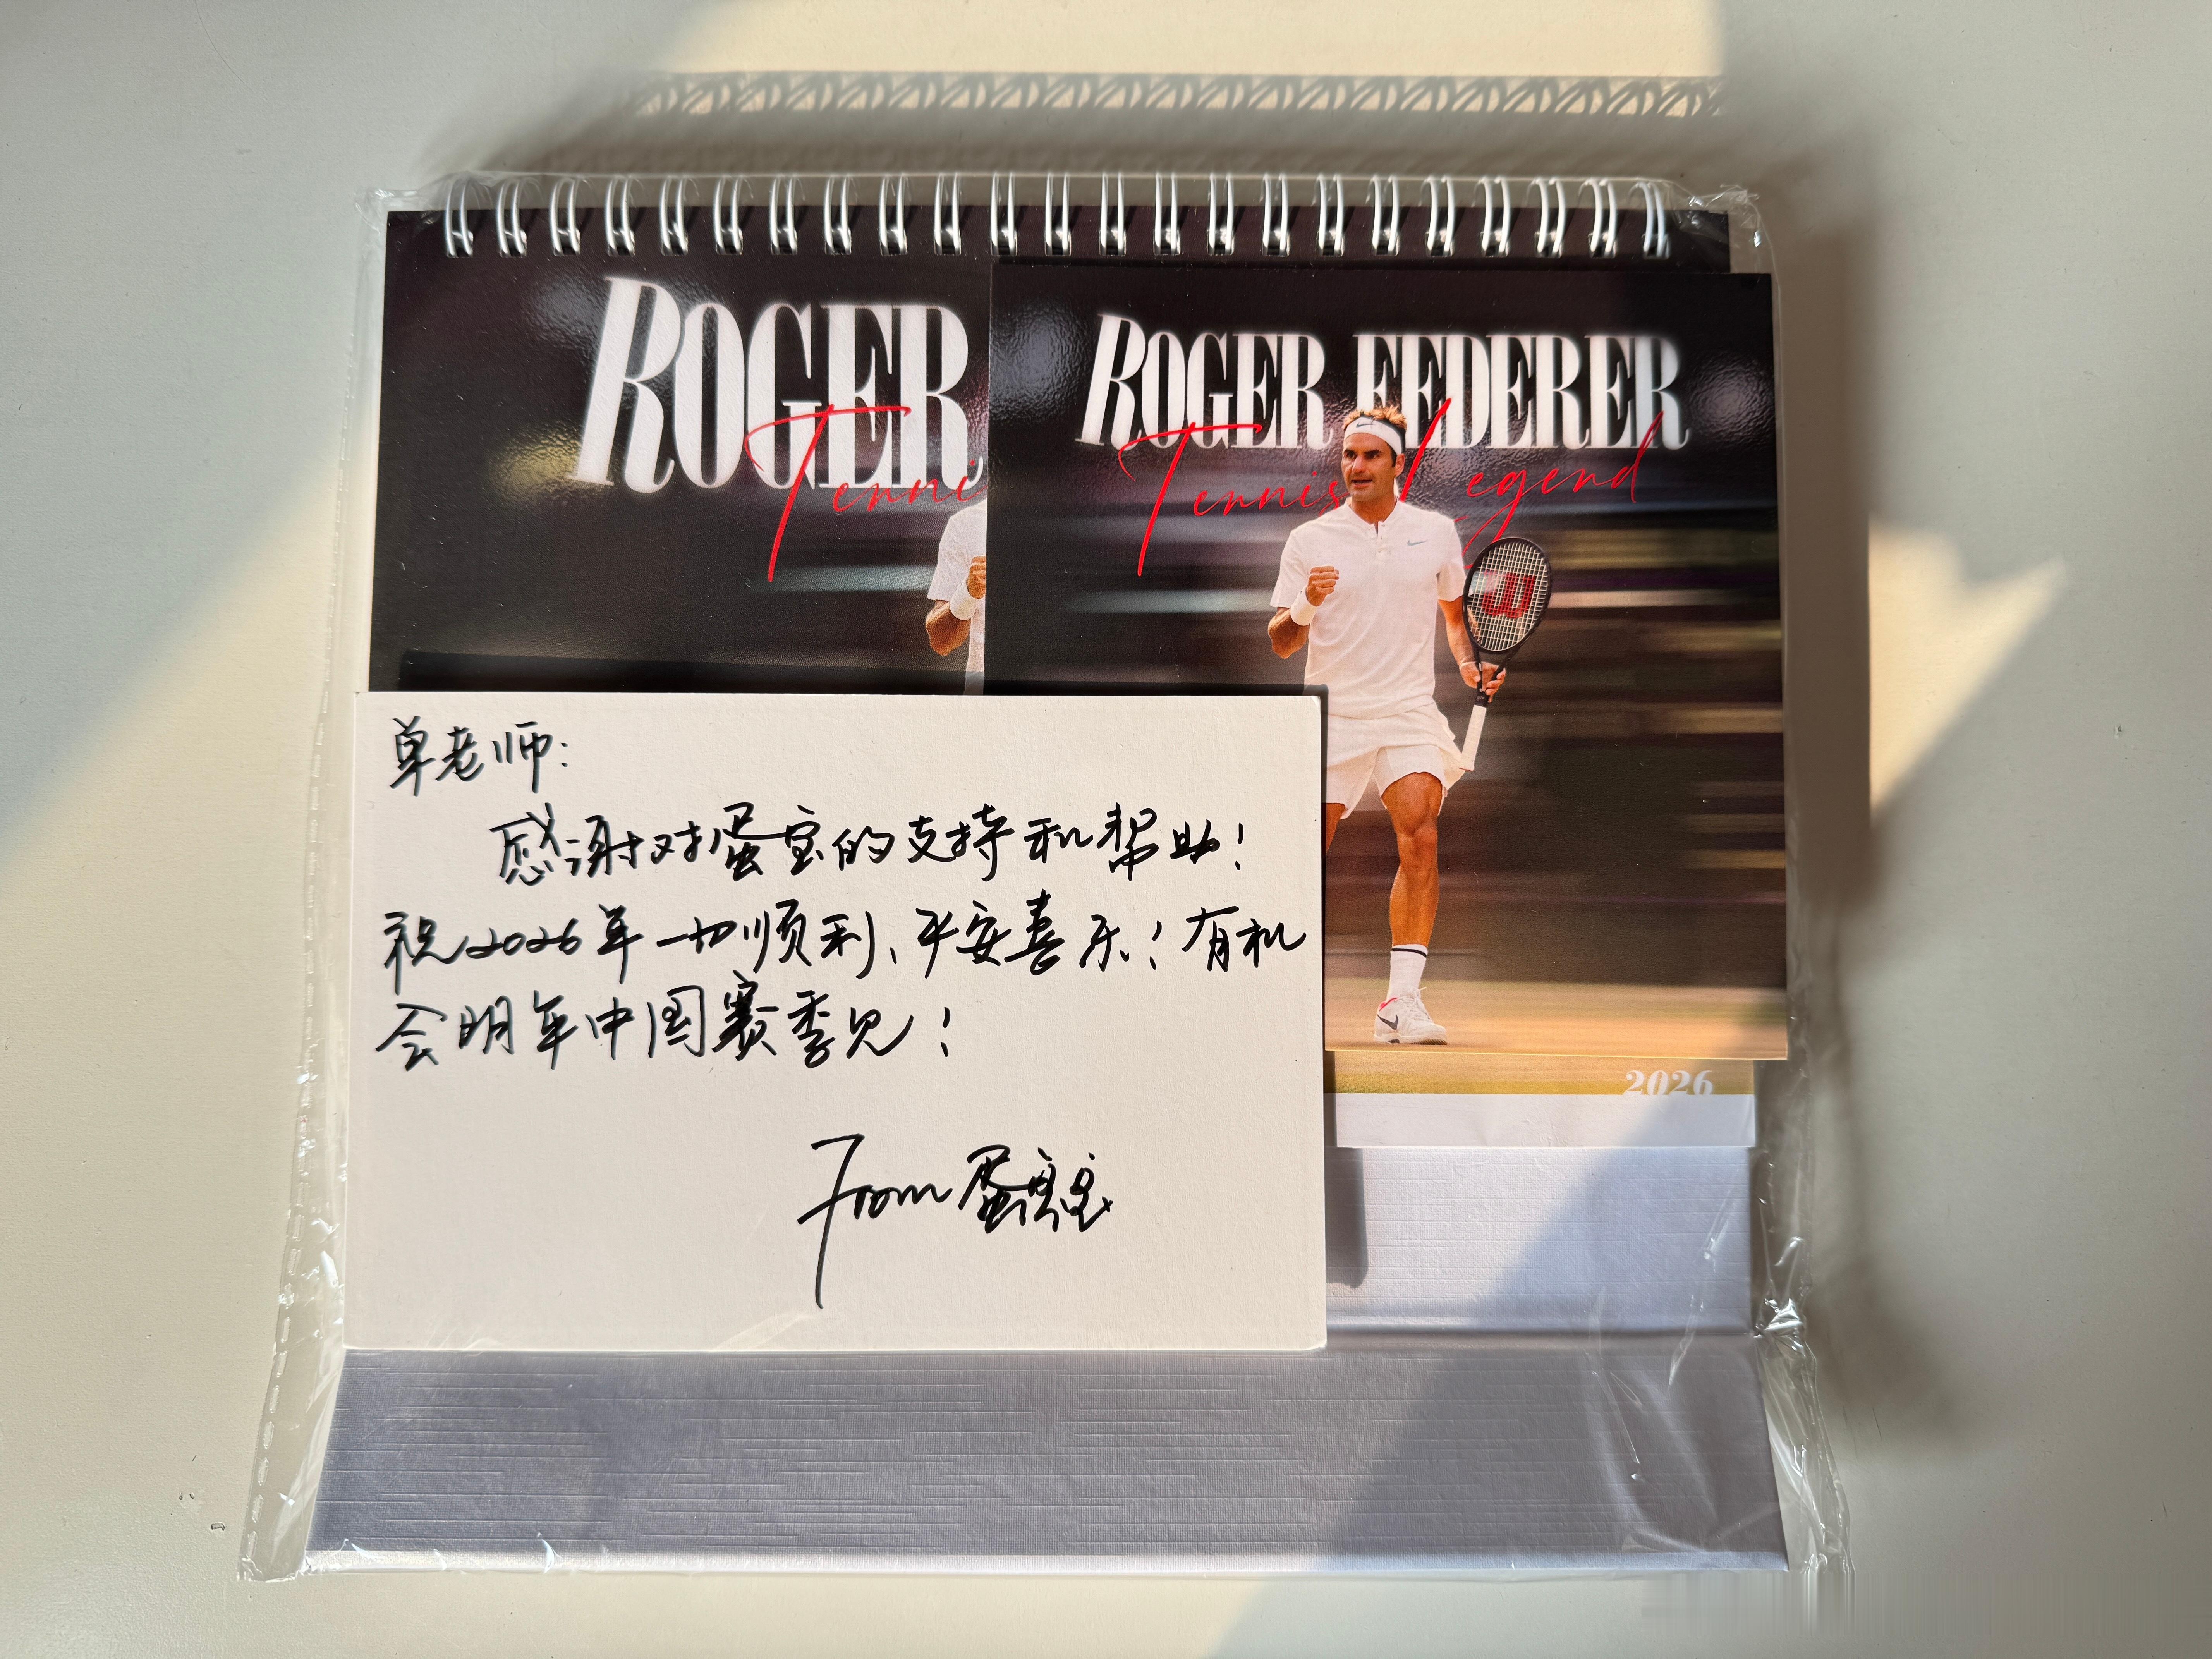 ROGER
Tenni
ROGER FEDERER
Tennis Legend
2026
单老师:
感谢对蛋宝的支持和帮助!
祝2026年一切顺利、平安喜乐!有机
会明年中国赛季见!
From 蛋宝